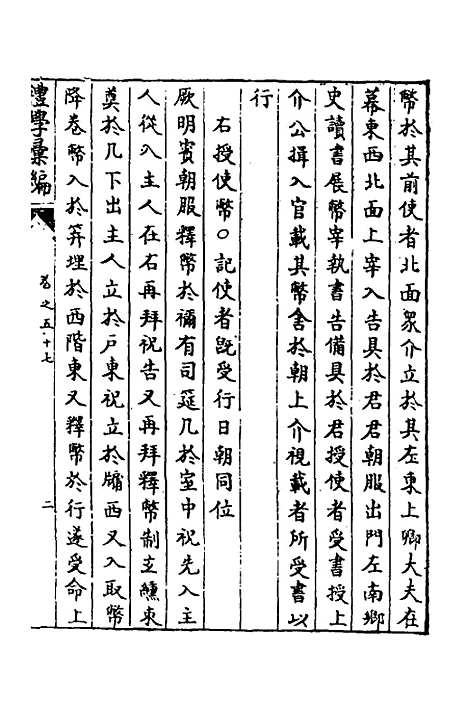 幣於其前使者北面衆介立於其左東上卿大夫在
幕東西北面上宰入告具於君君朝服出門左南鄉
史讀書展幣宰執書告備具於君授使者受書授上
介公揖入官載其幣舍於朝上介視載者所受書以
行
右授使幣○記使者旣受行日朝同位
厥明賓朝服釋幣於禰有司筵几於室中祝先入主
人從入主人在右再拜祝告又再拜釋幣制玄纁束
奠於几下出主人立於戶東祝立於牖西又入取幣
降卷幣入於笲埋於西階東又釋幣於行遂受命上
禮學彙編
卷之五十七
二